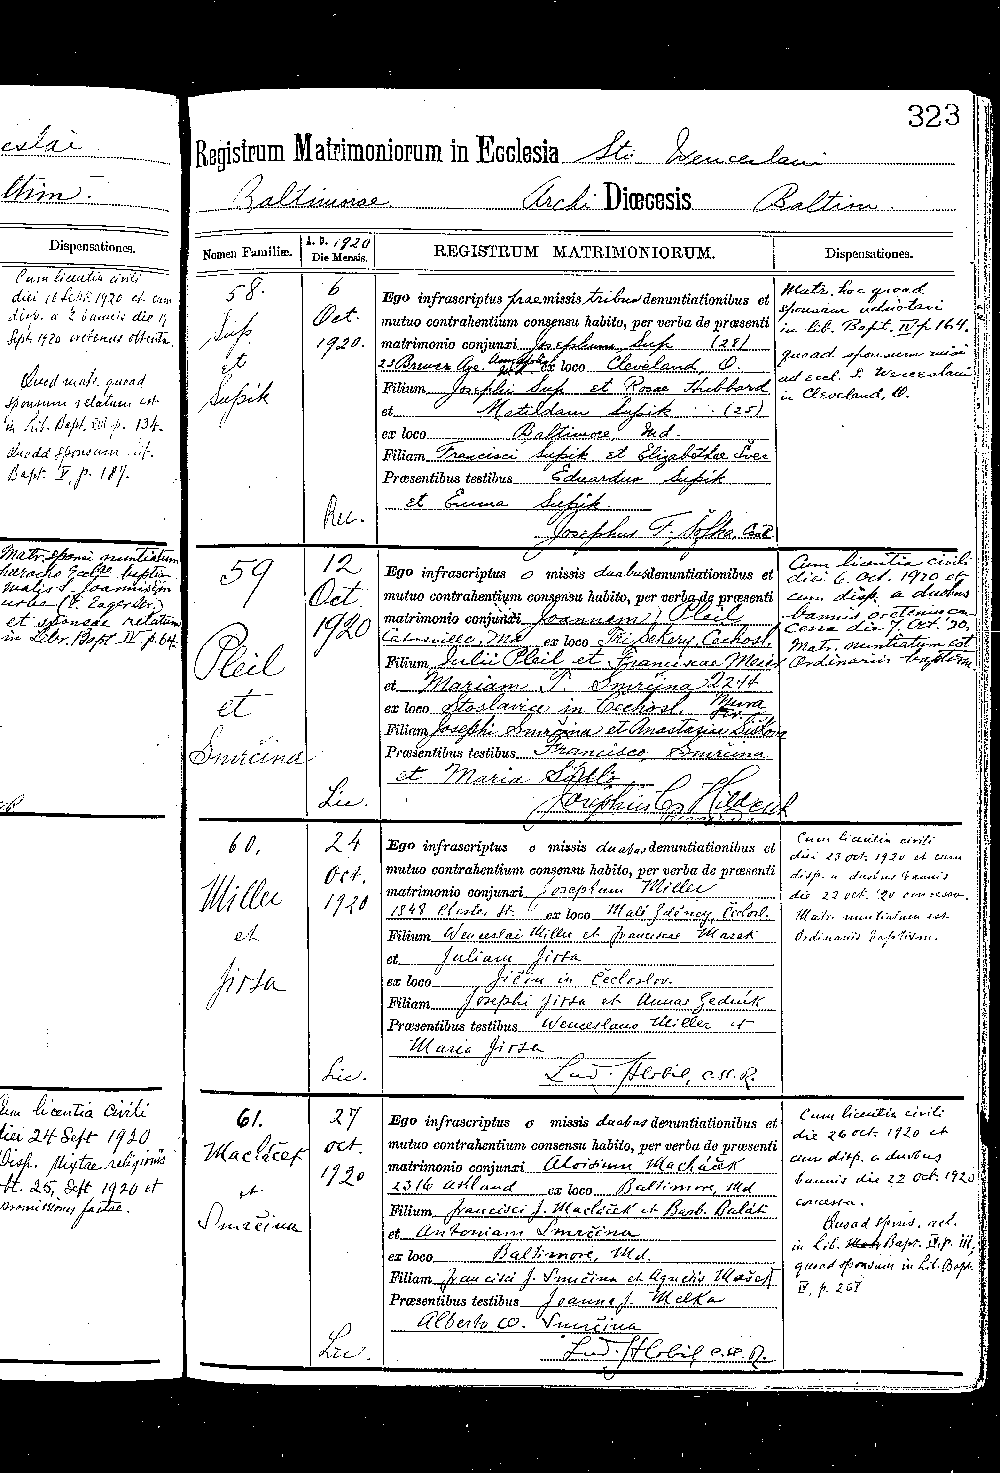 323
eslai
ltim.
Dispensationes.
Cum licentia civili
diei 16 Sept 1920 et cum
disp. a 2 bannis die 17
Sept 1920
Quod matr. quoad
sponsum relatum est
in Lib. Bapt. p. 134.
quoad sponsam it.
Bapt. V, p. 187.
Matr. sponsi nuntiatum
et sponsae relatum
in Libr. Bapt IV p. 64
Cum licentia civili
diei 24 Sept 1920
Disp. Mixtae religionis
25, Sept 1920 et
promissiones factae.
Registrum Matrimoniorum in Ecclesia Sti Wenceslai
Baltimorae Archi Diœcesis Baltim.
Nomen Familiæ.
A. D. 1920
Die Mensis.
REGISTRUM MATRIMONIORUM.
Dispensationes.
58.
Sup
et
Supik
6
Oct.
1920.
Rec.
Ego infrascriptus praemissis tribus denuntiationibus et
mutuo contrahentium consensu habito, per verba de præsenti
matrimonio conjunxi Josephum Sup (28)
23 Brewer Ave ex loco Cleveland, O.
Filium Josephi Sup et Rosae Hubbard
et Matildam Supik (25)
ex loco Baltimore, Md.
Filiam Francisci Supik et Elizabethae Švec
Præsentibus testibus Eduardus Supik
et Emma Supik.
Josephus T.
Matr. hoc quoad
sponsam
in Lib. Bapt. IV p 164.
quoad sponsum misi
ad eccl. S. Wenceslai
in Cleveland, O.
59
Pleil
et
Smrčina
12
Oct
1920
Lic.
Ego infrascriptus o missis duabus denuntiationibus et
mutuo contrahentium consensu habito, per verba de præsenti
matrimonio conjunxi Joannem Pleil
Catonsville, Md ex loco Tri Sekery, Cechosl.
Filium Julii Pleil et Franciscae Meier
et Mariam T. Smrčina 22
ex loco Stoslavice in Cechosl.
Filiam Josephi Smrčina et Anastaziae
Præsentibus testibus Francisco Smrčina
et Maria Šidlo
Cum licentia civili
diei 6. Oct. 1920 et
cum disp. a duobus
bannis
cessa die 7 Oct. '20.
Matr. nuntiatum est
Ordinariis baptism.
60.
Miller
et
Jirsa
24
Oct.
1920
Lic.
Ego infrascriptus o missis duabus denuntiationibus et
mutuo contrahentium consensu habito, per verba de præsenti
matrimonio conjunxi Josephum Miller
1848 Chester St. ex loco Malé Zděncy, Čechosl.
Filium Wenceslai Miller et Franciscae Marek
et Juliam Jirsa
ex loco Jičin in Čechoslov.
Filiam Josephi Jirsa et Annae Zedník
Præsentibus testibus Wenceslaus Miller et
Maria Jirsa
Lud. Hlobil, C.SS.R.
Cum licentia civili
diei 23 oct. 1920 et cum
disp. a duobus bannis
die 22 oct. '20 concessa.
Matr. nuntiatum est
Ordinariis baptism.
61.
Macháček
et
Smrčina
27
oct.
1920
Lic.
Ego infrascriptus o missis duabus denuntiationibus et
mutuo contrahentium consensu habito, per verba de præsenti
matrimonio conjunxi Aloisium Macháček
2316 Ashland ex loco Baltimore, Md
Filium Francisci J. Macháček et Barb.
et Antoniam Smrčina
ex loco Baltimore, Md.
Filiam Francisci J. Smrčina et Agnetis Mašek
Præsentibus testibus Joanne J. Melka
Alberto W. Smrčina
Lud. Hlobil C.SS.R.
Cum licentia civili
die 26 oct. 1920 et
cum disp. a duobus
bannis die 22 oct. 1920
concessa.
Quoad spons. rel.
in Lib. Bapt. IV. p. 111,
quoad sponsum in Lib. Bapt.
IV, p. 267